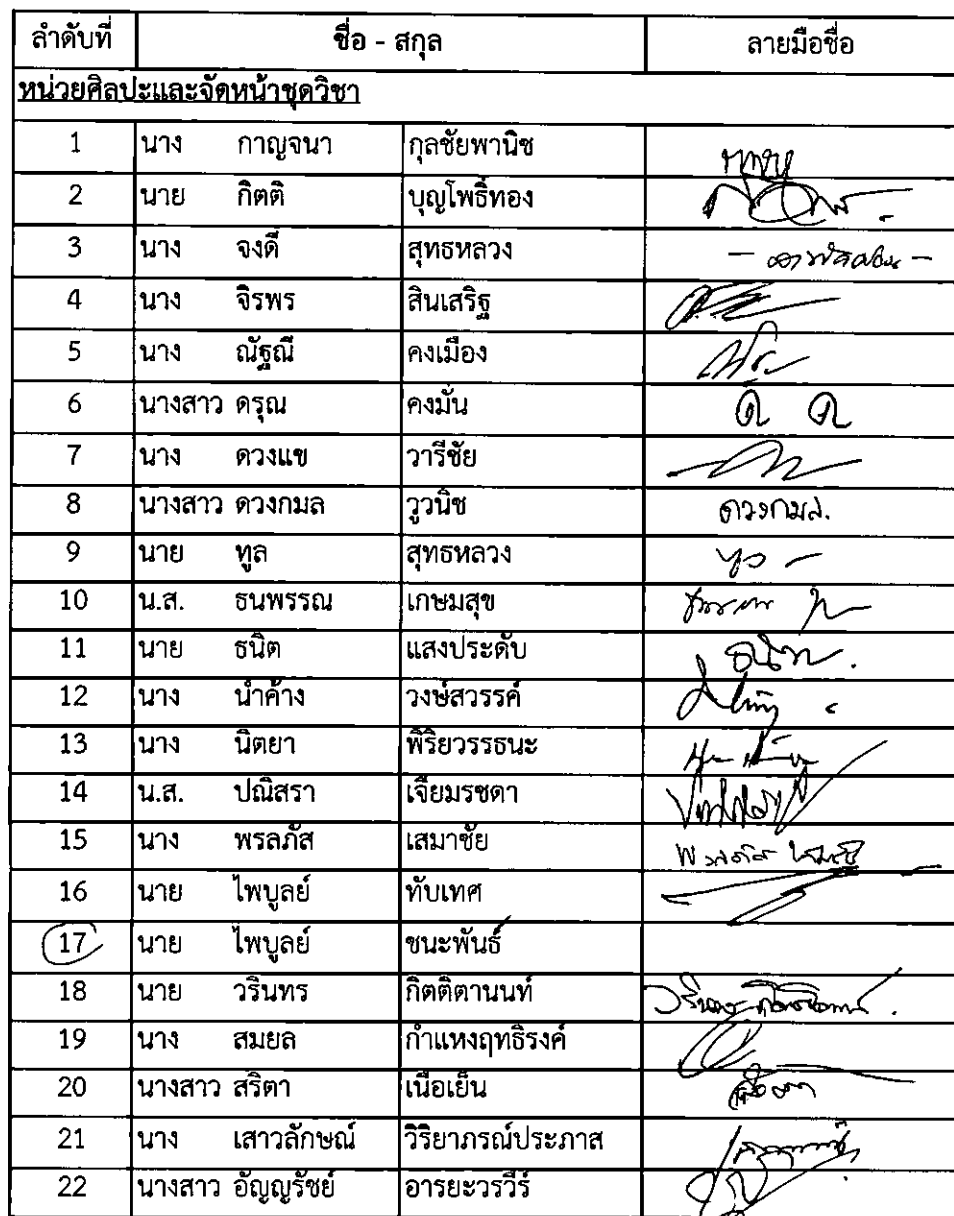 ลำดับที่ ชื่อ - สกุล ลายมือชื่อ
หน่วยศิลปะและจัดหน้าชุดวิชา
1 นาง กาญจนา กุลชัยพานิช
2 นาย กิตติ บุญโพธิ์ทอง
3 นาง จงดี สุทธหลวง
4 นาง จิรพร สินเสริฐ
5 นาง ณัฐณี คงเมือง
6 นางสาว ดรุณ คงมั่น
7 นาง ดวงแข วารีชัย
8 นางสาว ดวงกมล วูวนิช ดวงกมล.
9 นาย ทูล สุทธหลวง
10 น.ส. ธนพรรณ เกษมสุข
11 นาย ธนิต แสงประดับ ธนิต.
12 นาง น้ำค้าง วงษ์สวรรค์
13 นาง นิตยา พิริยวรรธนะ
14 น.ส. ปณิสรา เจียมรชดา
15 นาง พรลภัส เสมาชัย
16 นาย ไพบูลย์ ทับเทศ
17 นาย ไพบูลย์ ชนะพันธ์
18 นาย วรินทร กิตติตานนท์
19 นาง สมยล กำแหงฤทธิรงค์
20 นางสาว สริตา เนื้อเย็น
21 นาง เสาวลักษณ์ วิริยาภรณ์ประภาส
22 นางสาว อัญญรัชย์ อารยะวรวีร์